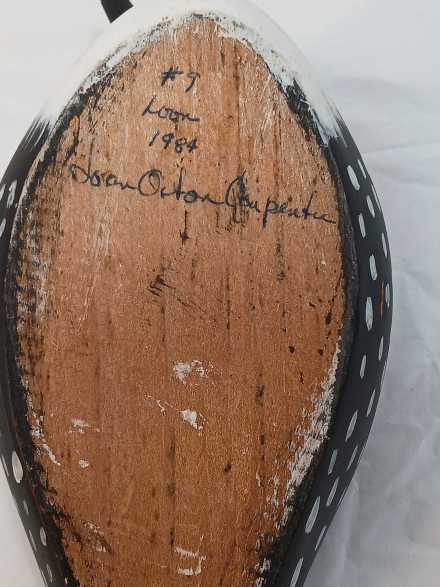 #9
Loon
1984
Joan Orton Carpenter